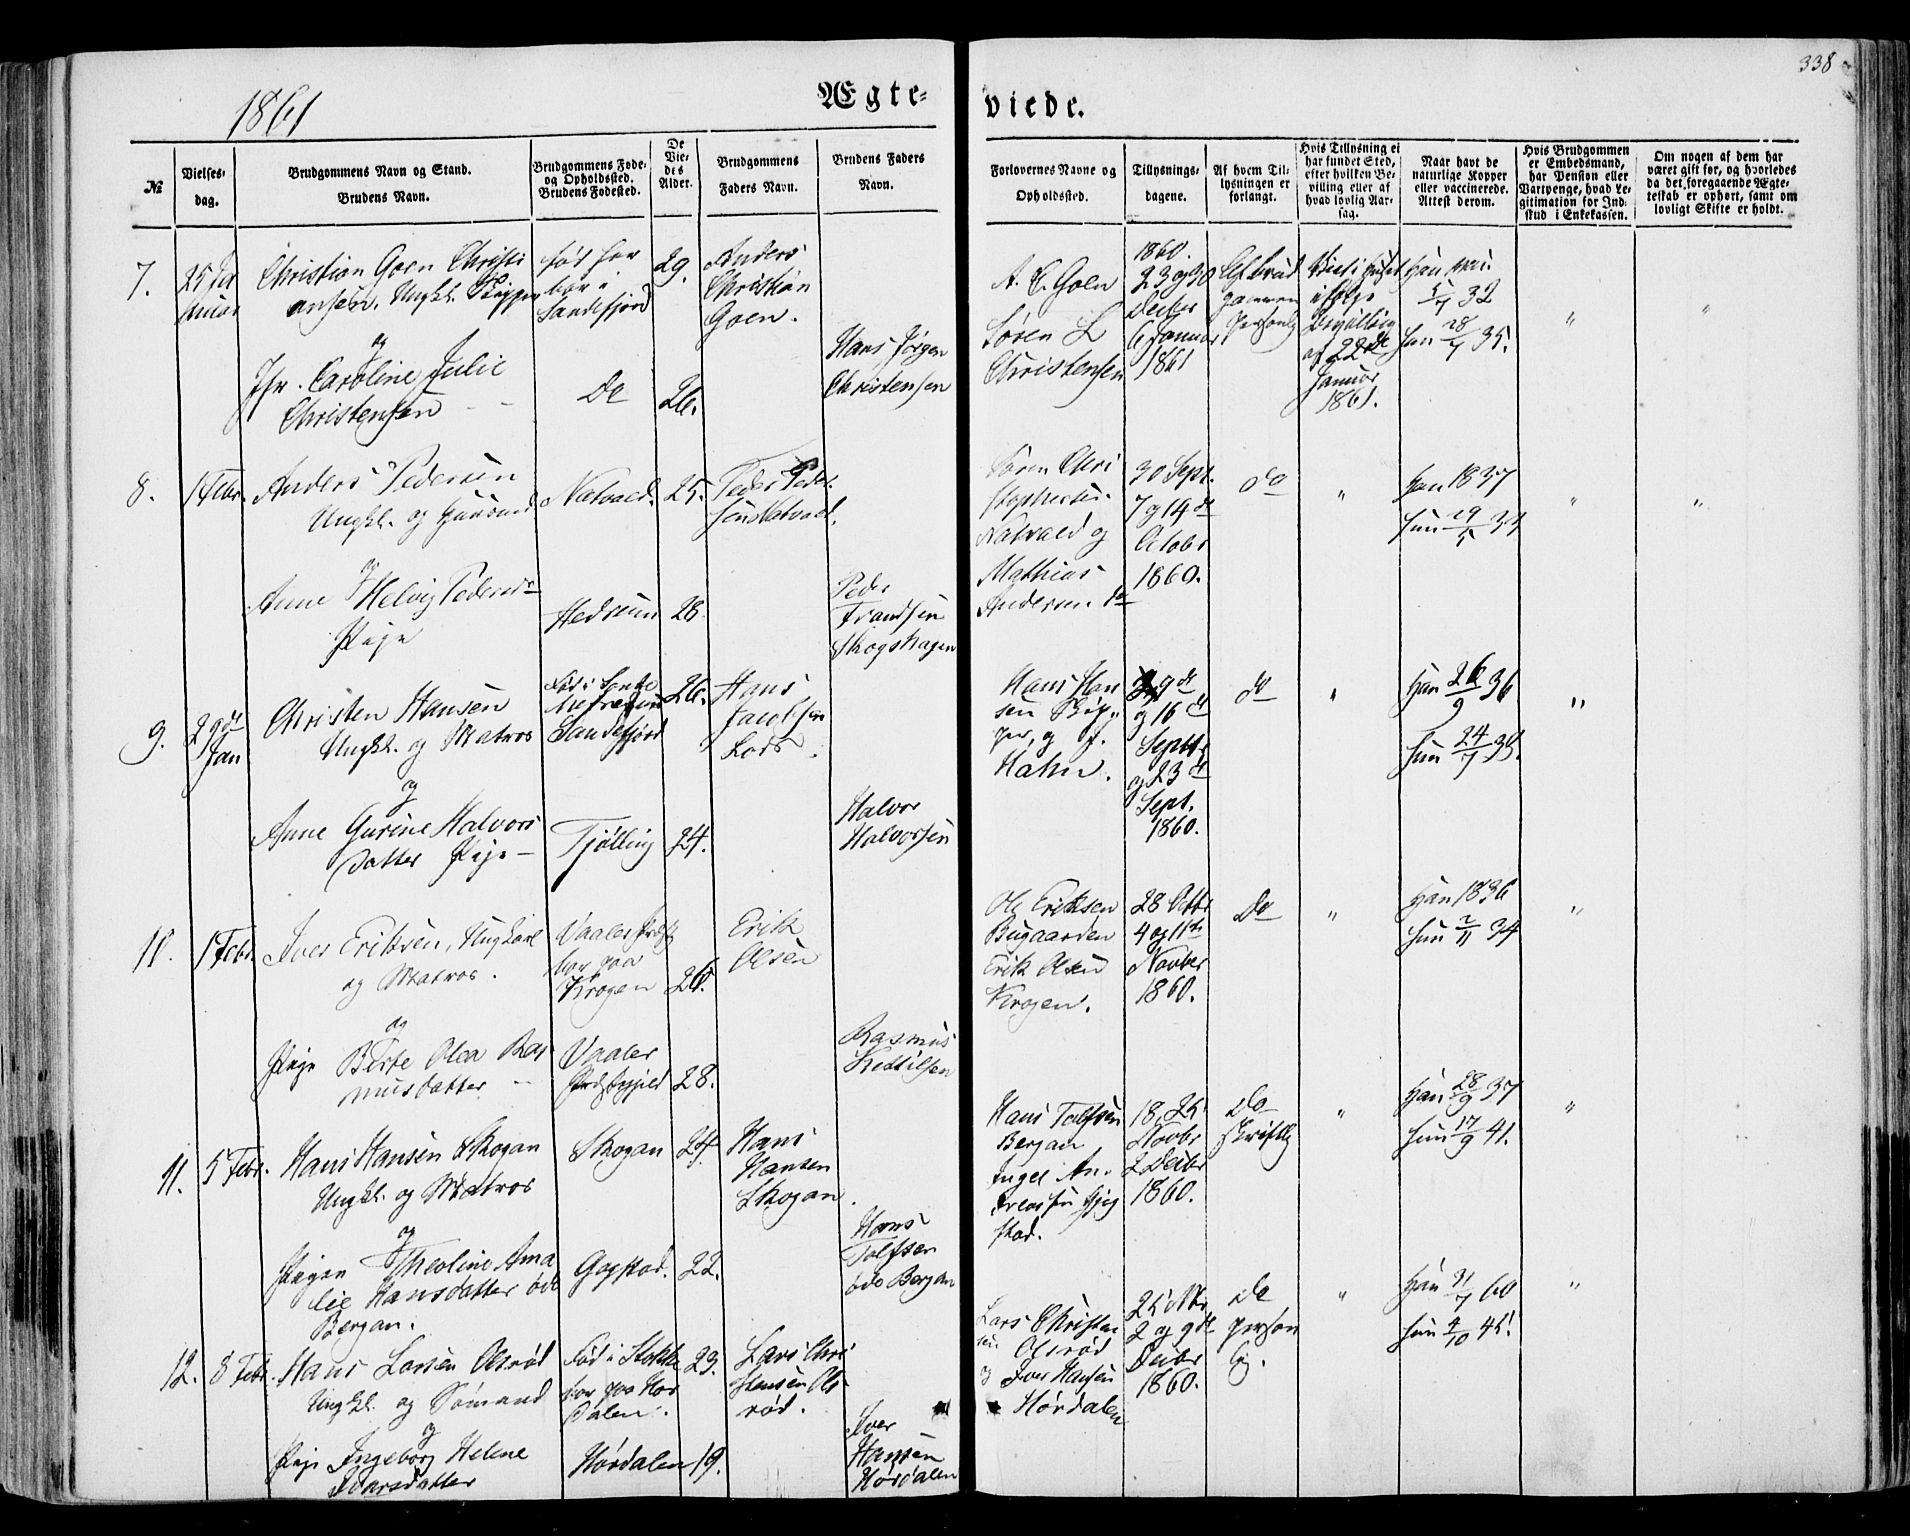 338
1861
Ægte=
viede.
№
Vielses-
dag.
Brudgommens Navn og Stand.
Brudens Navn.
Brudgommens Føde-
og Opholdssted.
Brudens Fødested.
De
Vie-
des
Alder.
Brudgommens
Faders Navn.
Brudens Faders
Navn.
Forlovernes Navne og
Opholdssted.
Tillysnings-
dagene.
Af hvem Til-
lysningen er
forlangt.
Hvis Tillysning ei
har fundet Sted,
efter hvilken Be-
villing eller af
hvad lovlig Aar-
sag.
Naar havt de
naturlige Kopper
eller vaccinerede.
Attest derom.
Hvis Brudgommen
er Embedsmand,
har Pension eller
Vartpenge, hvad Le-
gitimation for Ind-
skud i Enkekassen.
Om nogen af dem har
været gift før, og hvorledes
da det foregaaende Ægte-
teskab er ophørt, samt om
lovligt Skifte er holdt.
7.
25 Ja
nuar
Christian Goen Christi
ansen. Ungkl. Skipper
og
Jfr. Caroline Julie
Christensen
født her
bor i
Sandefjord
Do
29.
26.
Anders
Christian
Goen.
Hans Jørgen
Christensen
A. C. Goen
Søren L
Christensen
1860.
23 og 30
Decbr
6 Januar
1861
Af Brud
gommen
personlig
Viet i Huset
ifølge
Bevilling
af 22de
Januar
1861.
Han
32
Hun 28/7 35.
"
"
8.
1 Febr.
Anders Pedersen
Ungkl. og
og
Anne Helvig Pedersd
Pige
Natvald.
Hedrum
25.
28.
Peder Peder
sen Natvald.
Peder
Frandsen
Skogshagen
Søren Chri
stophersen
Natvald og
Mathias
Andersen do
30 Sept.
7 og 14de
Octobr
1860.
do
"
Han 1837
Hun
"
"
9.
29de
Jan
Christen Hansen
Ungkl. og Matros
og
Anne Gurine Halvors
datter Pige —
Født i
Sandefjord
Tjølling
26.
24.
Hans
Jacobsen
Lods.
Halvor
Halvorsen
Hans Han
sen Skip-
per, og J.
Hahn.
9de
og 16de
Septbr
og 23de
Sept.
1860.
do
"
Han 26/9 36
Hun
"
10.
1 Febr.
Iver Eriksen, Ungkarl
og Matros.
og
Pige Berte Olea Ras
musdatter
Vaaler Præst
bor paa
Krogen
Vaaler
Præstegjeld
26.
28.
Erik
Olsen
Rasmus
Kittilsen
Ole Eriksen
Bugaarden
Erik Olsen
Krogen.
28 Octbr
4 og 11te
Novber
1860.
Do
"
Han 1836
Hun 2/11 34
"
11.
5 Febr.
Hans Hansen Skogan
Ungkl. og Matros
og
Pigen Theoline Ama
lie Hansdatter øde
Bergan.
Skogan
Gogstad.
24.
22.
Hans
Hansen
Skogan.
Hans
Tolfsen
øde Bergan
Hans Tolfsen
Bergan
Inger An-
dreassen
stad.
18, 25
Novbr
2 Decbr
1860.
Do
skriftlig
"
Han 28/9 37
Hun 17/9 41.
"
12.
8 Febr.
Hans Larsen Olsrød
Ungkl. og Sømand
og
Pige Ingeborg Helene
Iversdatter
Født i Stokke
bor paa Hør
dalen.
Hørdalen
23.
19.
Lars Chri
stensen Ols
rød.
Iver
Hansen
Hørdalen
Lars Christen
sen Olsrød
og Iver Hansen
Hørdalen
25 Nbr
2 og 9de
Decbr
1860.
Do
person
lig.
"
Han 60
Hun 4/10 45.
"